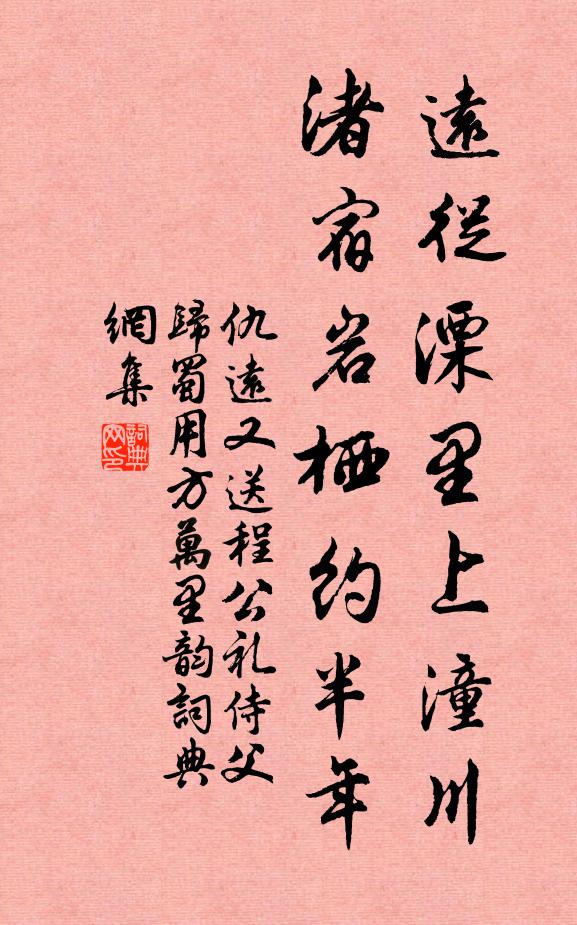 遠從溧里上潼川
渚宿岩栖約半年
仇遠又送程公礼侍父
歸蜀用方萬里韵詞典
網集
詞典網印